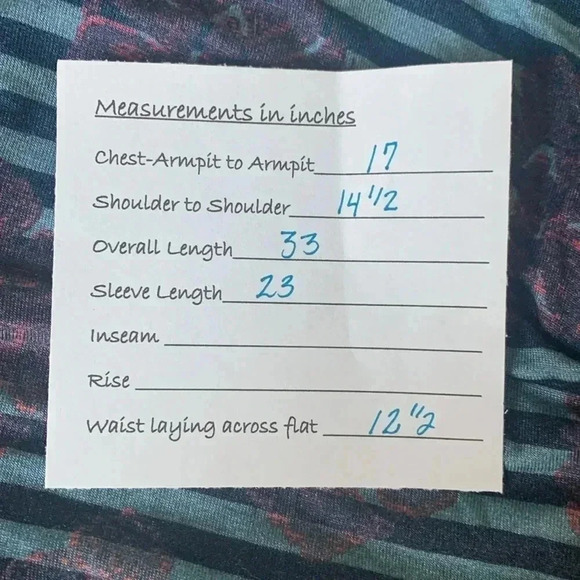 Measurements in inches
Chest-Armpit to Armpit 17
Shoulder to Shoulder 14 1/2
Overall Length 33
Sleeve Length 23
Inseam
Rise
Waist laying across flat 12 1/2